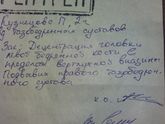 Кузнецова П, 2 г
тазобедренных суставов
Зак: Децентрация головки
левой бедренной кости в
пределах вертлужной впадины
Подвывих правого тазобедрен-
ного сустава